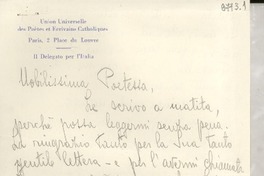 8793.1
Union Universelle
des Poètes et Ecrivains Catholiques
Paris, 2 Place du Louvre
Il Delegato per l'Italia
Nobilissima Poetessa,
Le scrivo a matita,
perchè possa leggermi senza pena.
La ringrazio tanto per la Sua tanto
gentile lettera - e per l'avermi chiamata